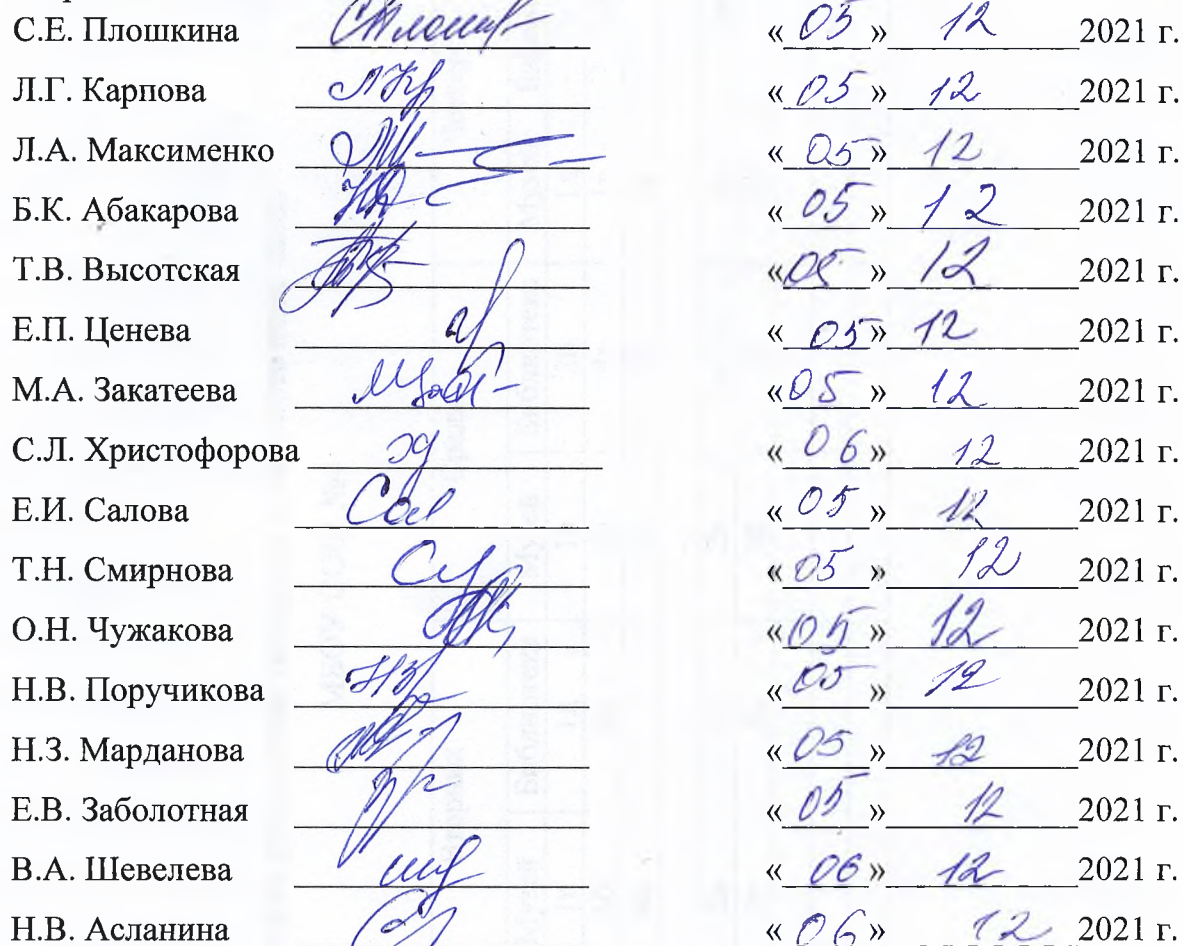 С.Е. Плошкина « 05 » 12 2021 г.
Л.Г. Карпова « 05 » 12 2021 г.
Л.А. Максименко « 05 » 12 2021 г.
Б.К. Абакарова « 05 » 12 2021 г.
Т.В. Высотская « 05 » 12 2021 г.
Е.П. Ценева « 05 » 12 2021 г.
М.А. Закатеева « 05 » 12 2021 г.
С.Л. Христофорова « 06 » 12 2021 г.
Е.И. Салова « 05 » 12 2021 г.
Т.Н. Смирнова « 05 » 12 2021 г.
О.Н. Чужакова « 05 » 12 2021 г.
Н.В. Поручикова « 05 » 12 2021 г.
Н.З. Марданова « 05 » 12 2021 г.
Е.В. Заболотная « 05 » 12 2021 г.
В.А. Шевелева « 06 » 12 2021 г.
Н.В. Асланина « 06 » 12 2021 г.